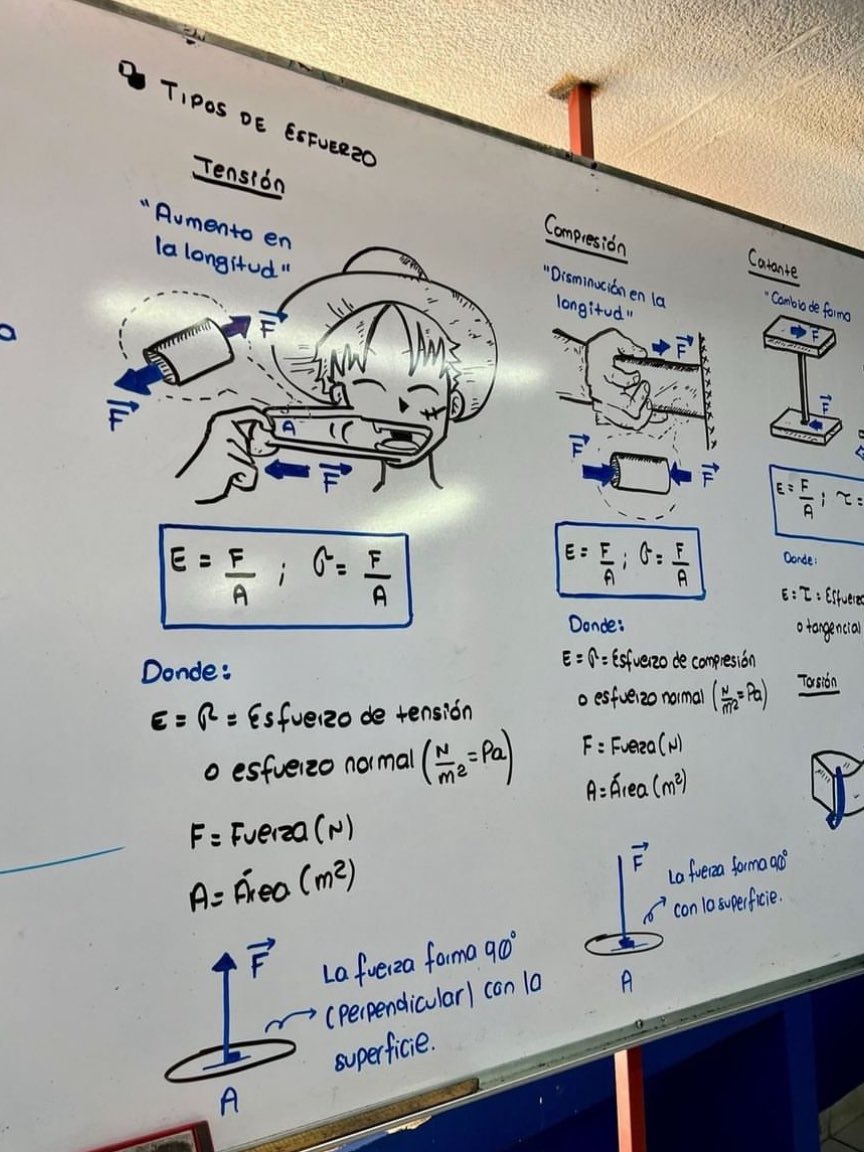 TIPOS DE ESFUERZO
Tensión
"Aumento en
la longitud"
F
F
A
F
E = F/A ; σ = F/A
Donde:
E = σ = Esfuerzo de tensión
o esfuerzo normal (N/m² = Pa)
F = Fuerza (N)
A = Área (m²)
F
La fuerza forma 90°
(perpendicular) con la
superficie.
A
Compresión
"Disminución en la
longitud"
F
F
F
E = F/A ; σ = F/A
Donde:
E = σ = Esfuerzo de compresión
o esfuerzo normal (N/m² = Pa)
F = Fueza (N)
A = Área (m²)
F
La fuerza forma 90°
con la superficie.
A
Cortante
"Cambio de forma
F
F
E = F/A ; τ =
Donde:
E = τ = Esfuerzo
o tangencial
Torsión